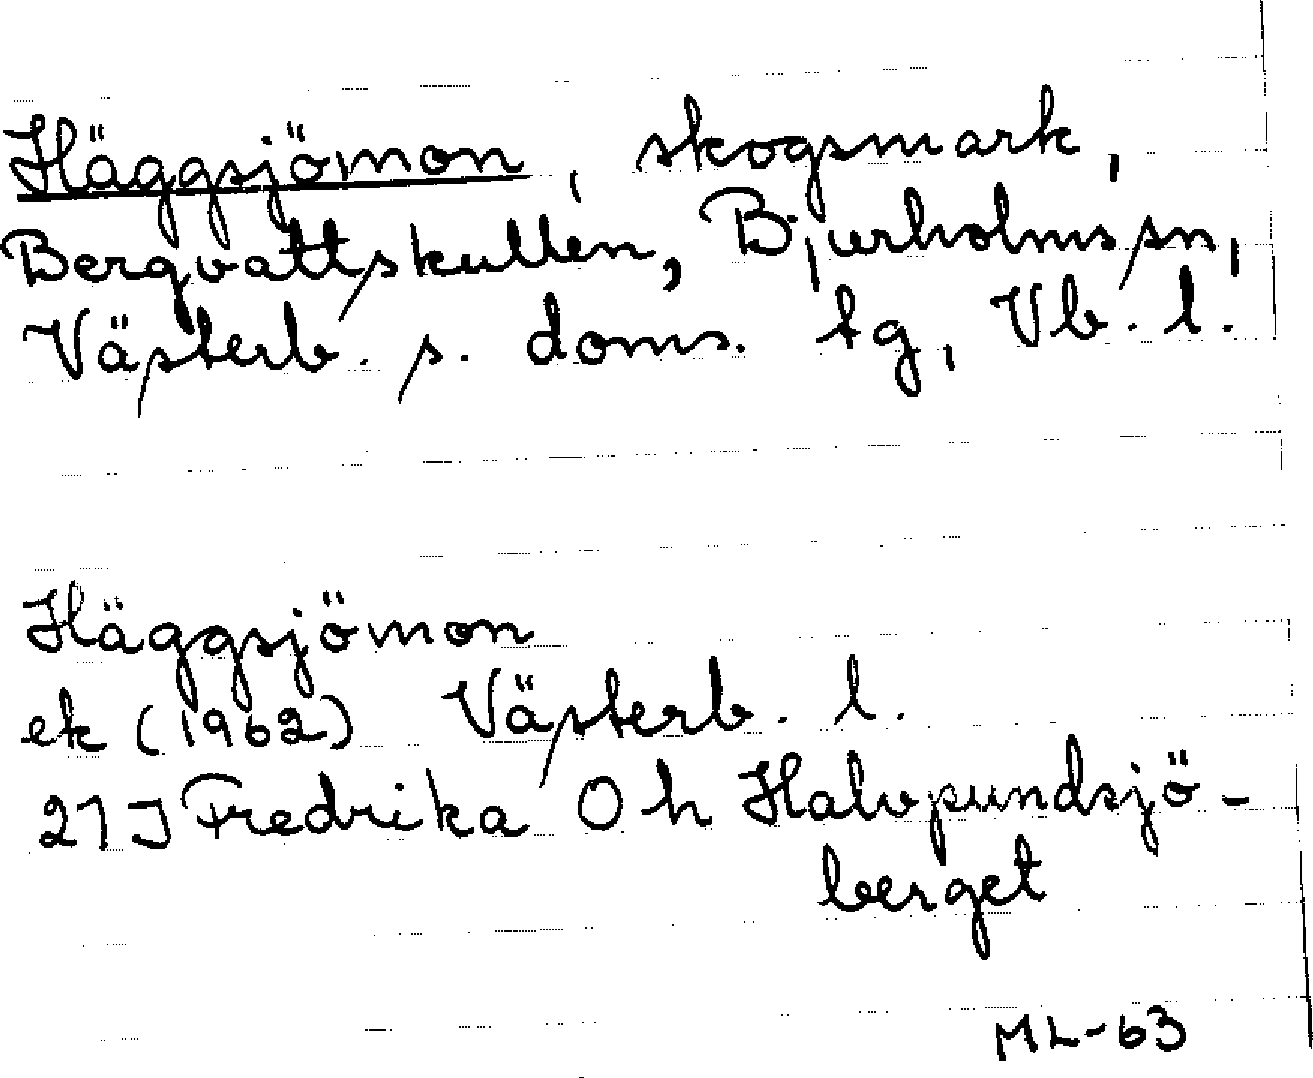 Häggsjömon, skogsmark,
Bergvattskullen, Bjurholms sn,
Västerb. s. doms. tg, Vb. l.
Häggsjömon
ek (1962) Västerb. l.
21 J Fredrika 0 h Halvpundsjö-
berget
ML-63